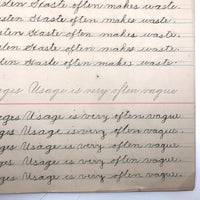 Haste often makes waste.
Haste often makes waste.
Haste often makes waste.
Haste often makes waste.
Haste often makes waste.
ges Usage is very often vague
ges Usage is very often vague
ges Usage is very often vague.
ges Usage is very often vague.
ges Usage is very often vague.
ges Usage is very often vague.